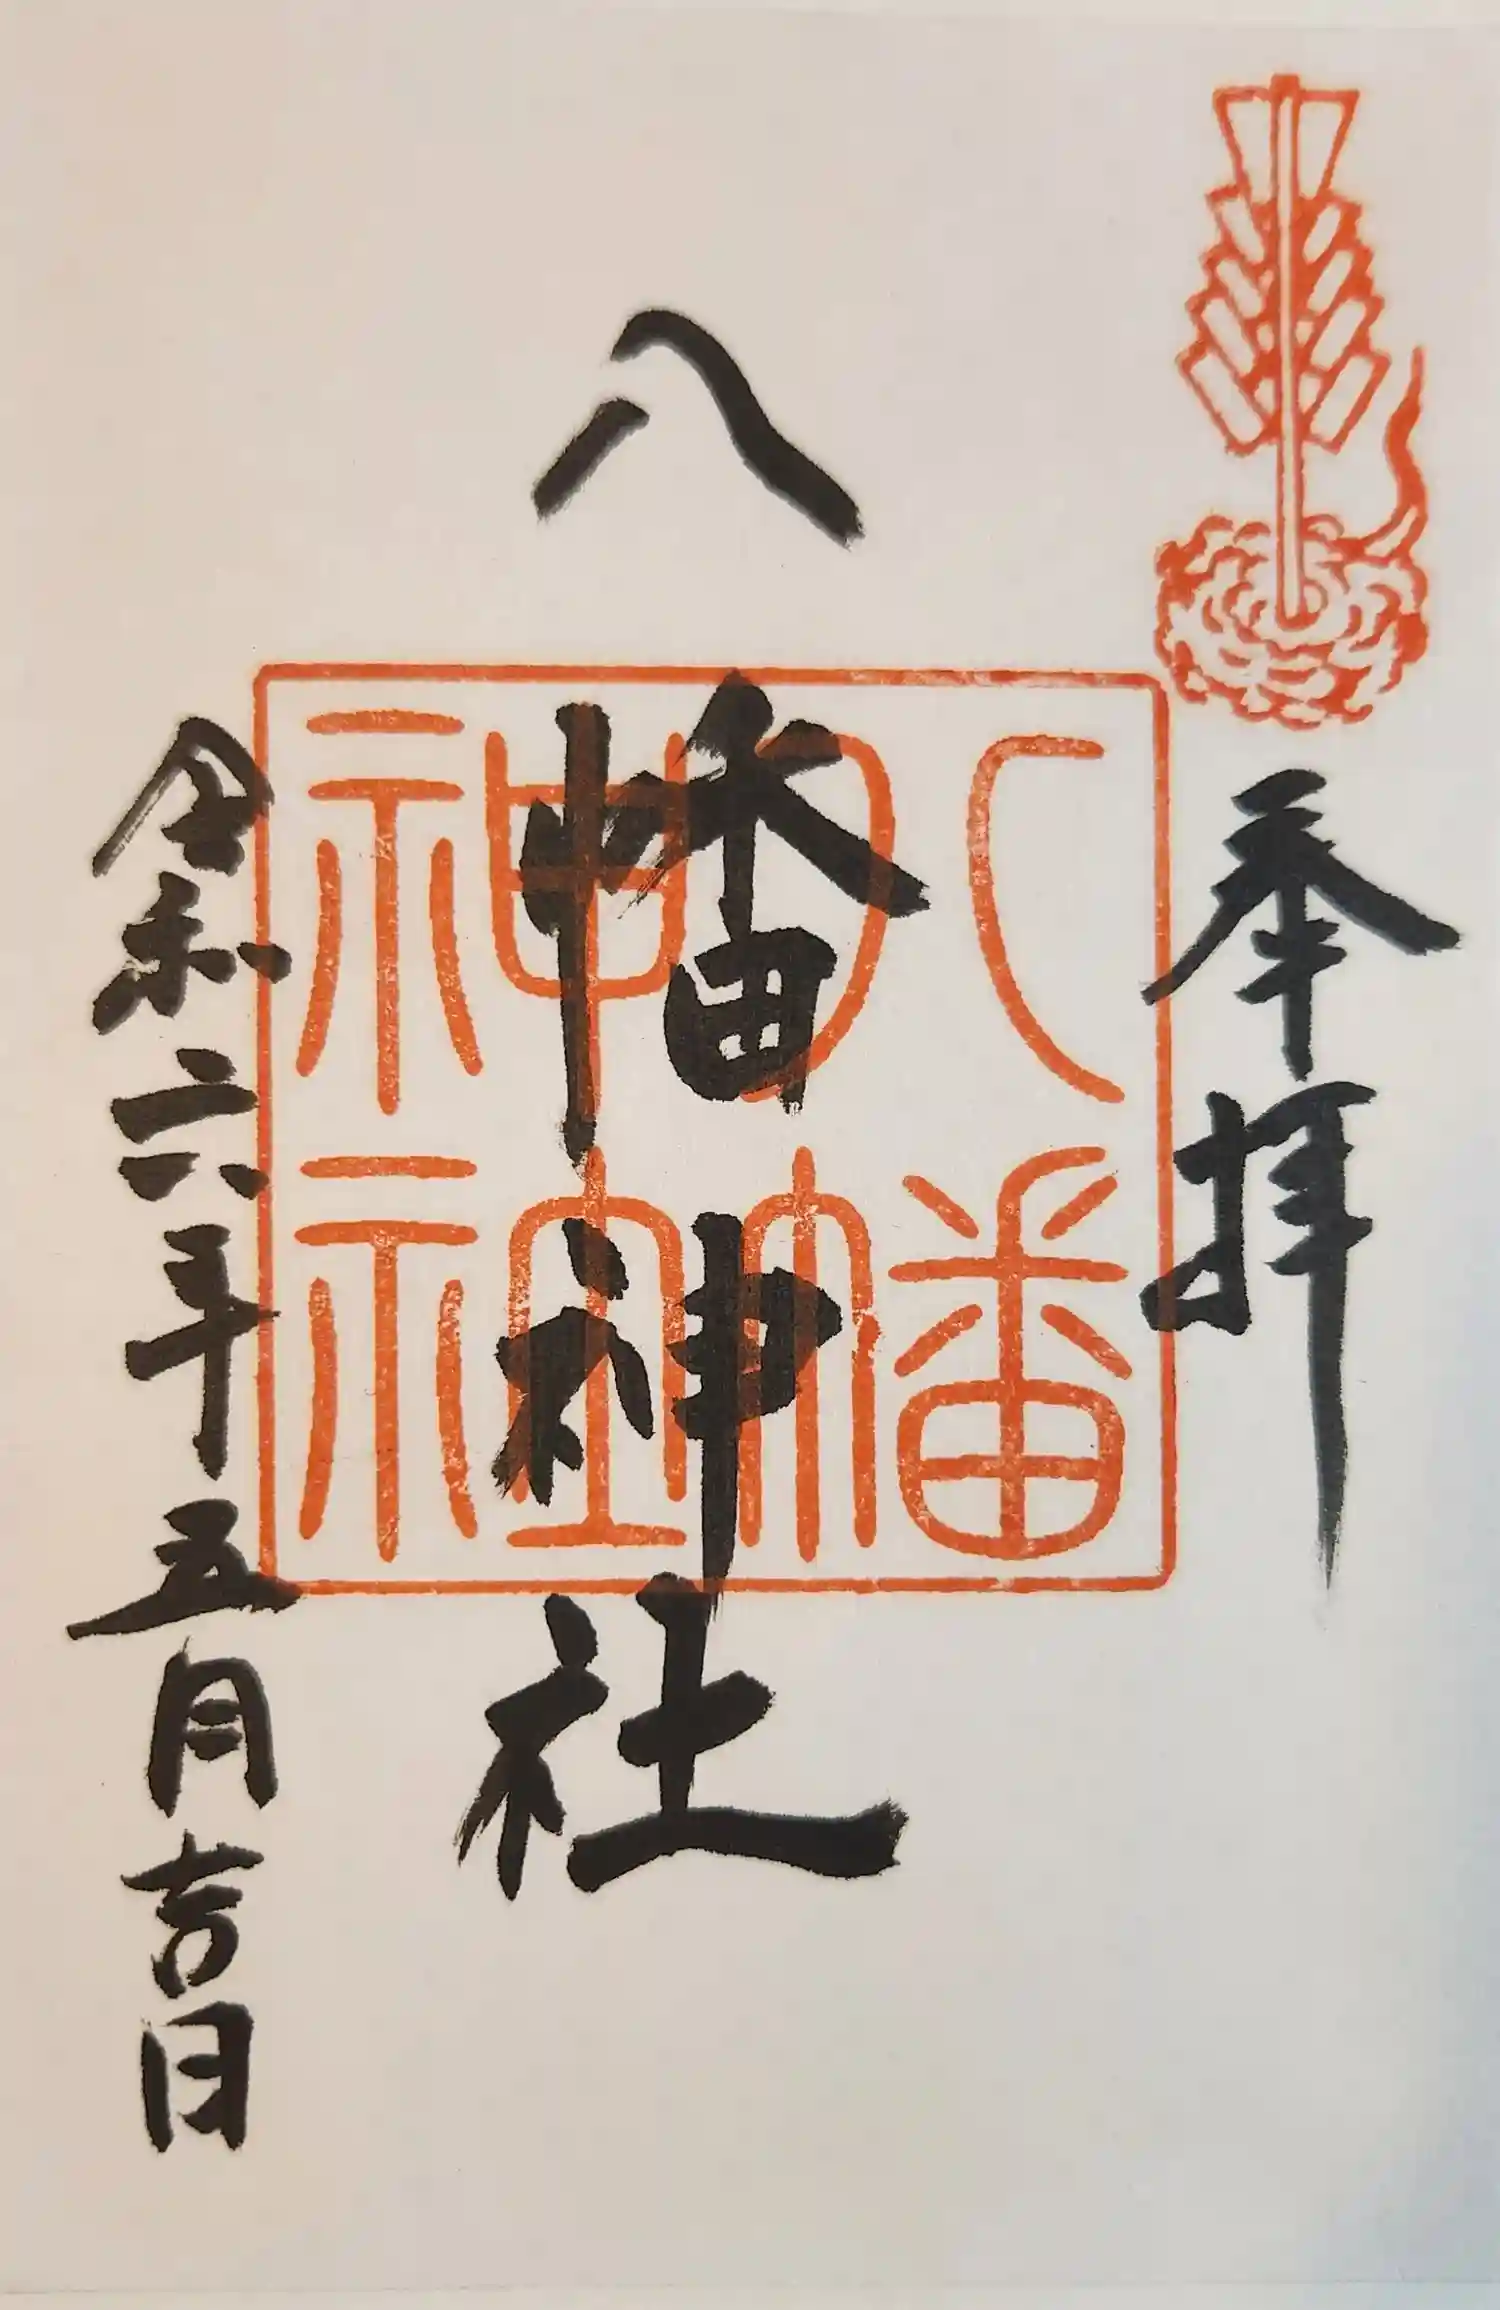 奉拝
八幡神社
八幡
神社
令和六年五月吉日